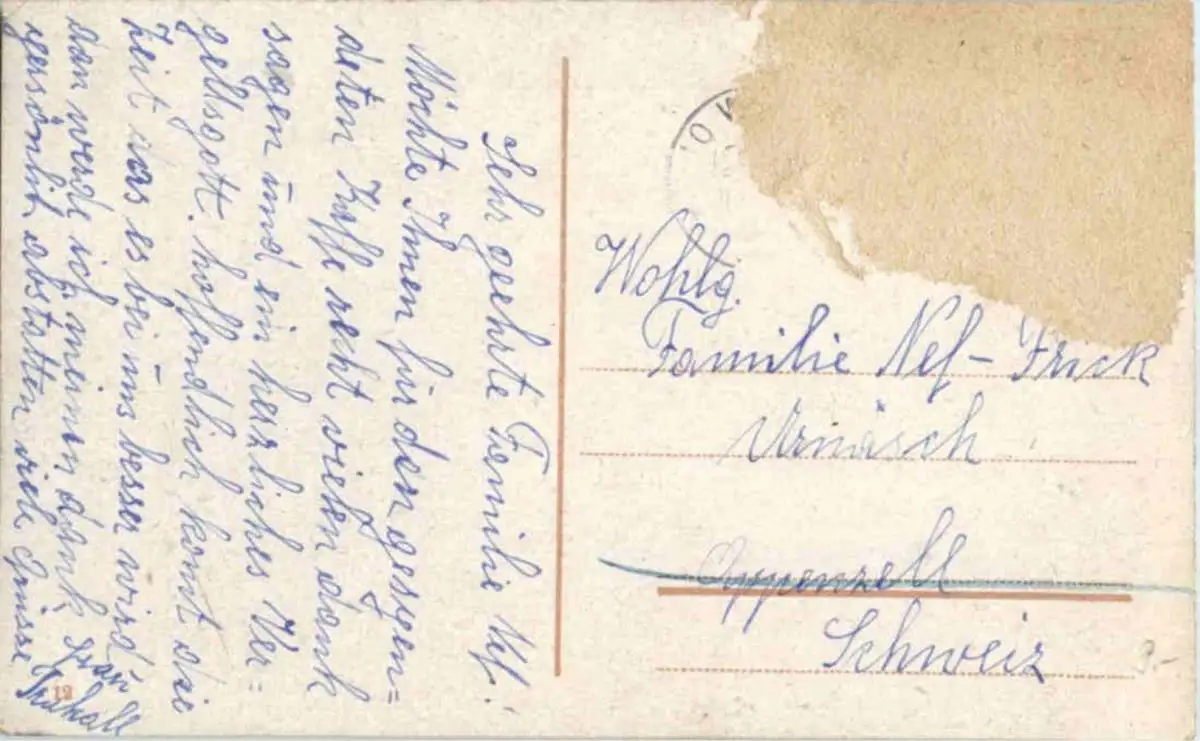 Sehr geehrte Familie Nef!
Möchte Ihnen für den gesgen=
deten Kaffe recht vielen dank
sagen und ein herzliches Ver=
geltsgott. hoffendlich komt die
Zeit das es bei uns besser wird
dan werde ich meinen dank
persönlich abstatten viele Grüsse
Frau
Wohlg.
Familie Nef-Frick
Urnäsch
Appenzell
Schweiz
3.-
12